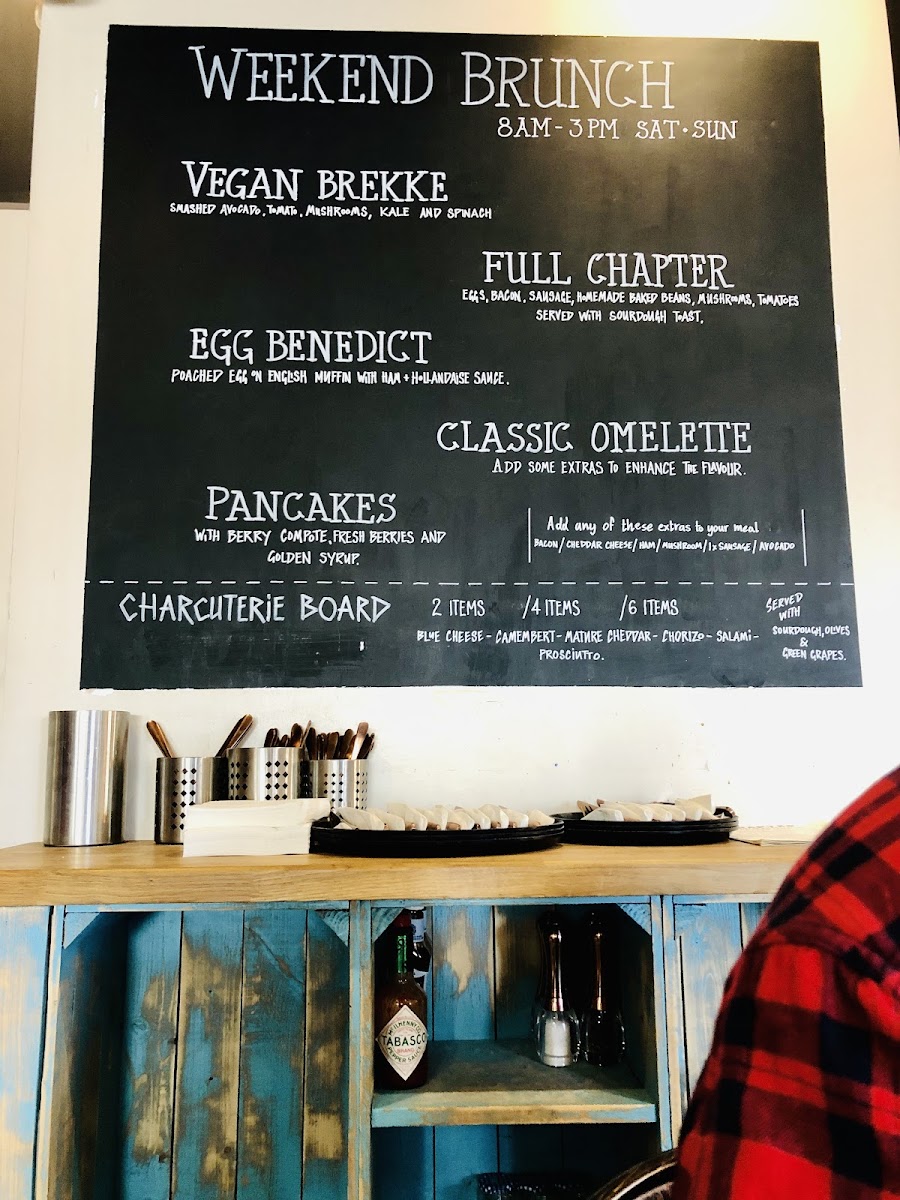 WEEKEND BRUNCH
8AM - 3PM SAT · SUN
VEGAN BREKKE
SMASHED AVOCADO, TOMATO, MUSHROOMS, KALE AND SPINACH
FULL CHAPTER
EGGS, BACON, SAUSAGE, HOMEMADE BAKED BEANS, MUSHROOMS, TOMATOES
SERVED WITH SOURDOUGH TOAST.
EGG BENEDICT
POACHED EGG ON ENGLISH MUFFIN WITH HAM + HOLLANDAISE SAUCE.
CLASSIC OMELETTE
ADD SOME EXTRAS TO ENHANCE THE FLAVOUR.
PANCAKES
WITH BERRY COMPOTE, FRESH BERRIES AND
GOLDEN SYRUP.
Add any of these extras to your meal
BACON / CHEDDAR CHEESE / HAM / MUSHROOM / 1x SAUSAGE / AVOCADO
CHARCUTERIE BOARD
2 ITEMS /4 ITEMS /6 ITEMS
BLUE CHEESE - CAMEMBERT - MATURE CHEDDAR - CHORIZO - SALAMI -
PROSCIUTTO.
SERVED
WITH
SOURDOUGH, OLIVES
&
GREEN GRAPES.
McILHENNY CO
TABASCO
BRAND
PEPPER SAUCE